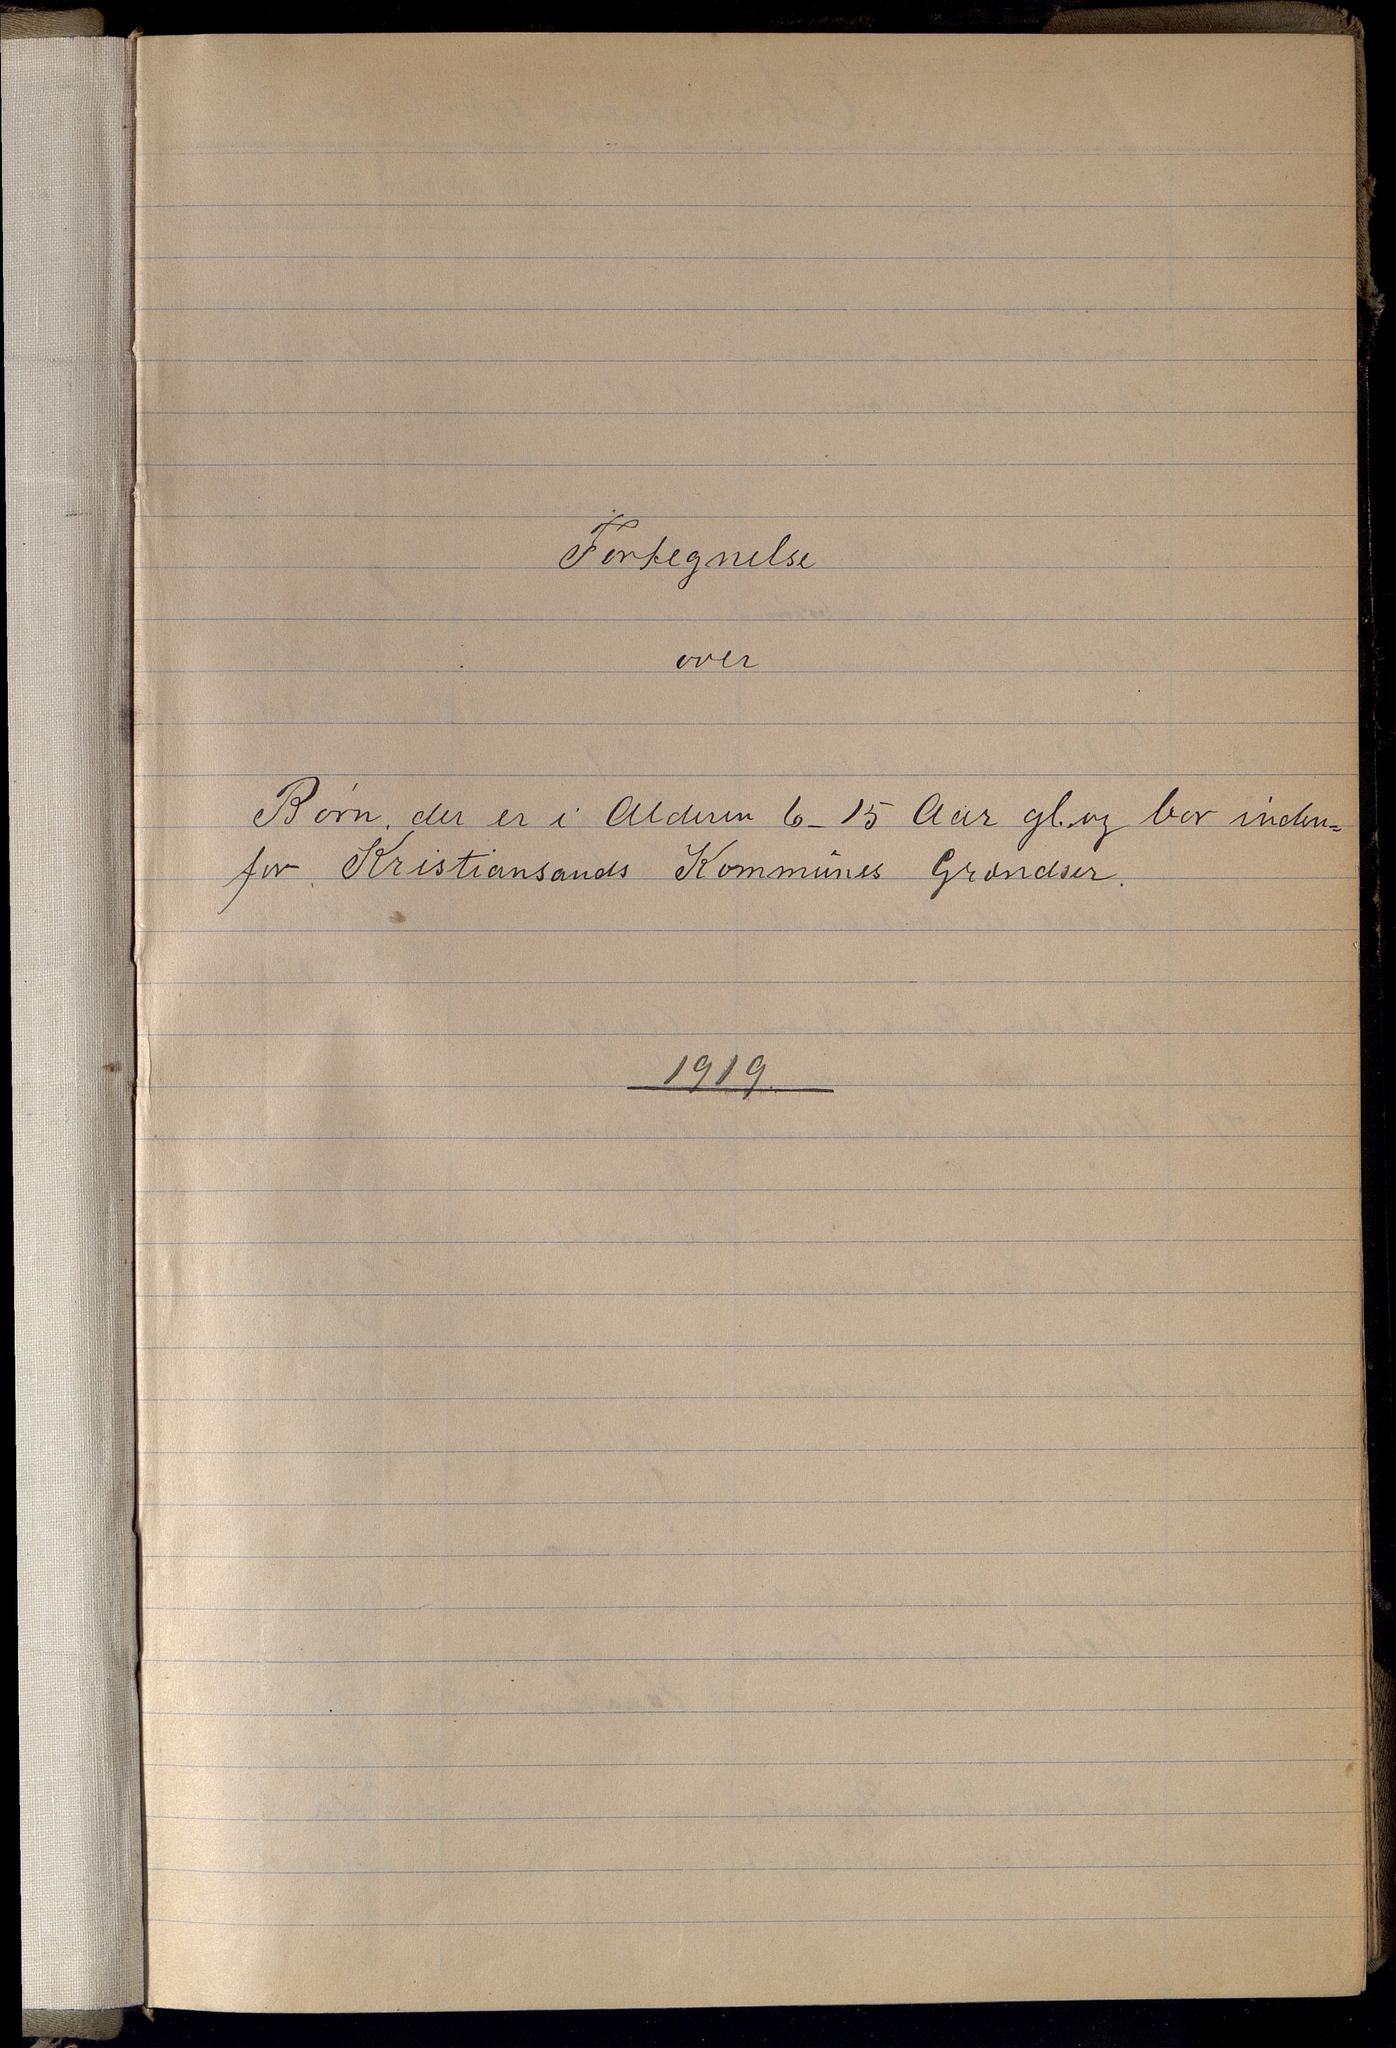 Fortegnelse
over
Børn, der er i Alderen 6-15 Aar gl. og bor inden=
for Kristiansands Kommunes Grændser.
1919.